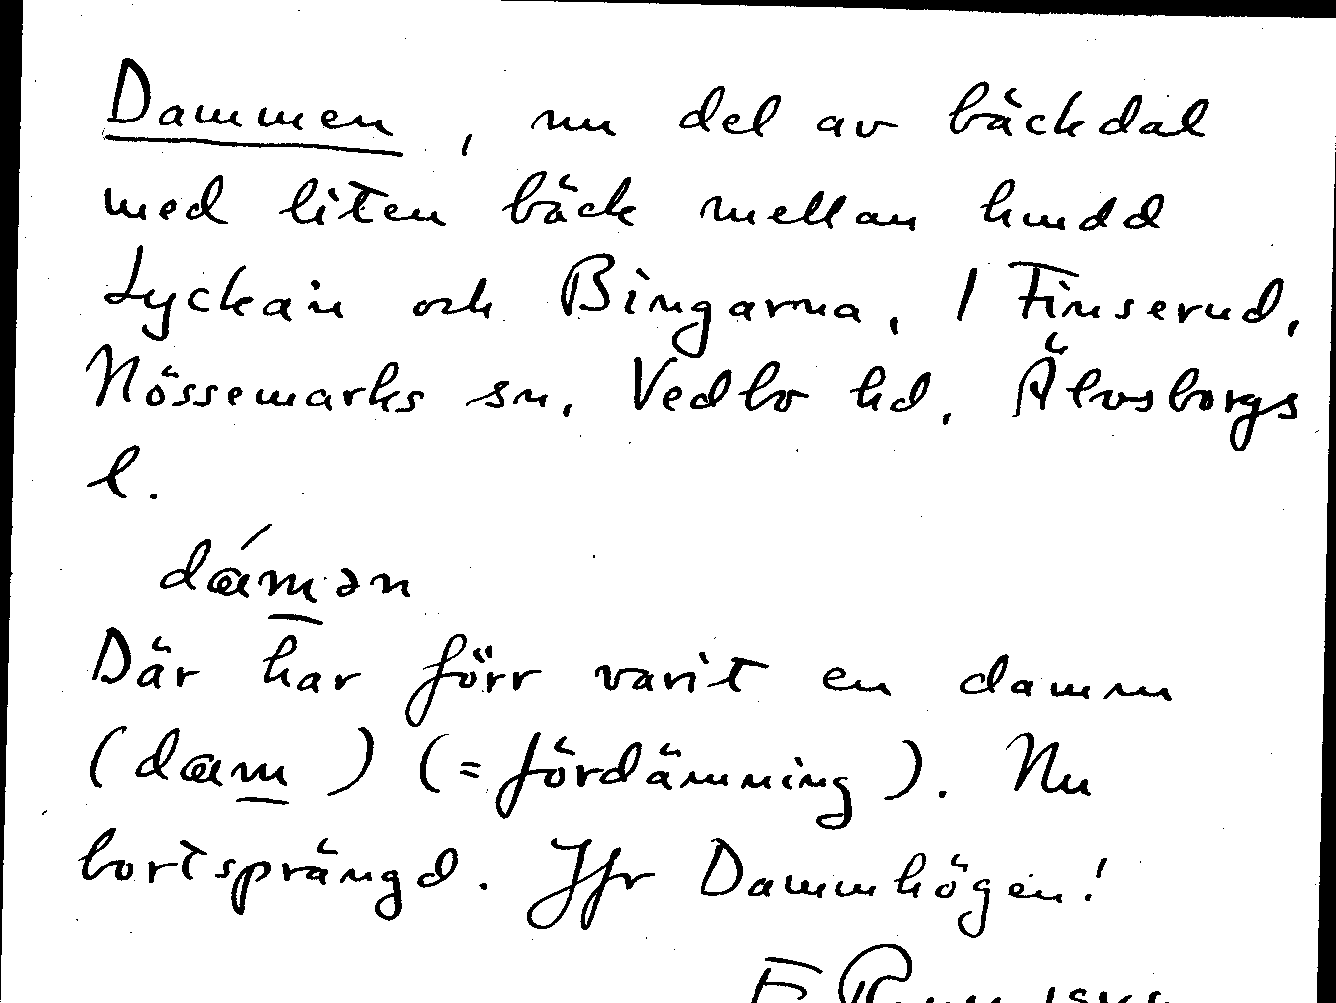 Dammen, nu del av bäckdal
med liten bäck mellan hmdd
Lyckan och Bingarna, 1 Finserud,
Nössemarks sn, Vedbo hd, Älvsborgs
l.
dámən
Där har förr varit en damm
(dam) (=fördämning). Nu
bortsprängd. Jfr Dammhögen!